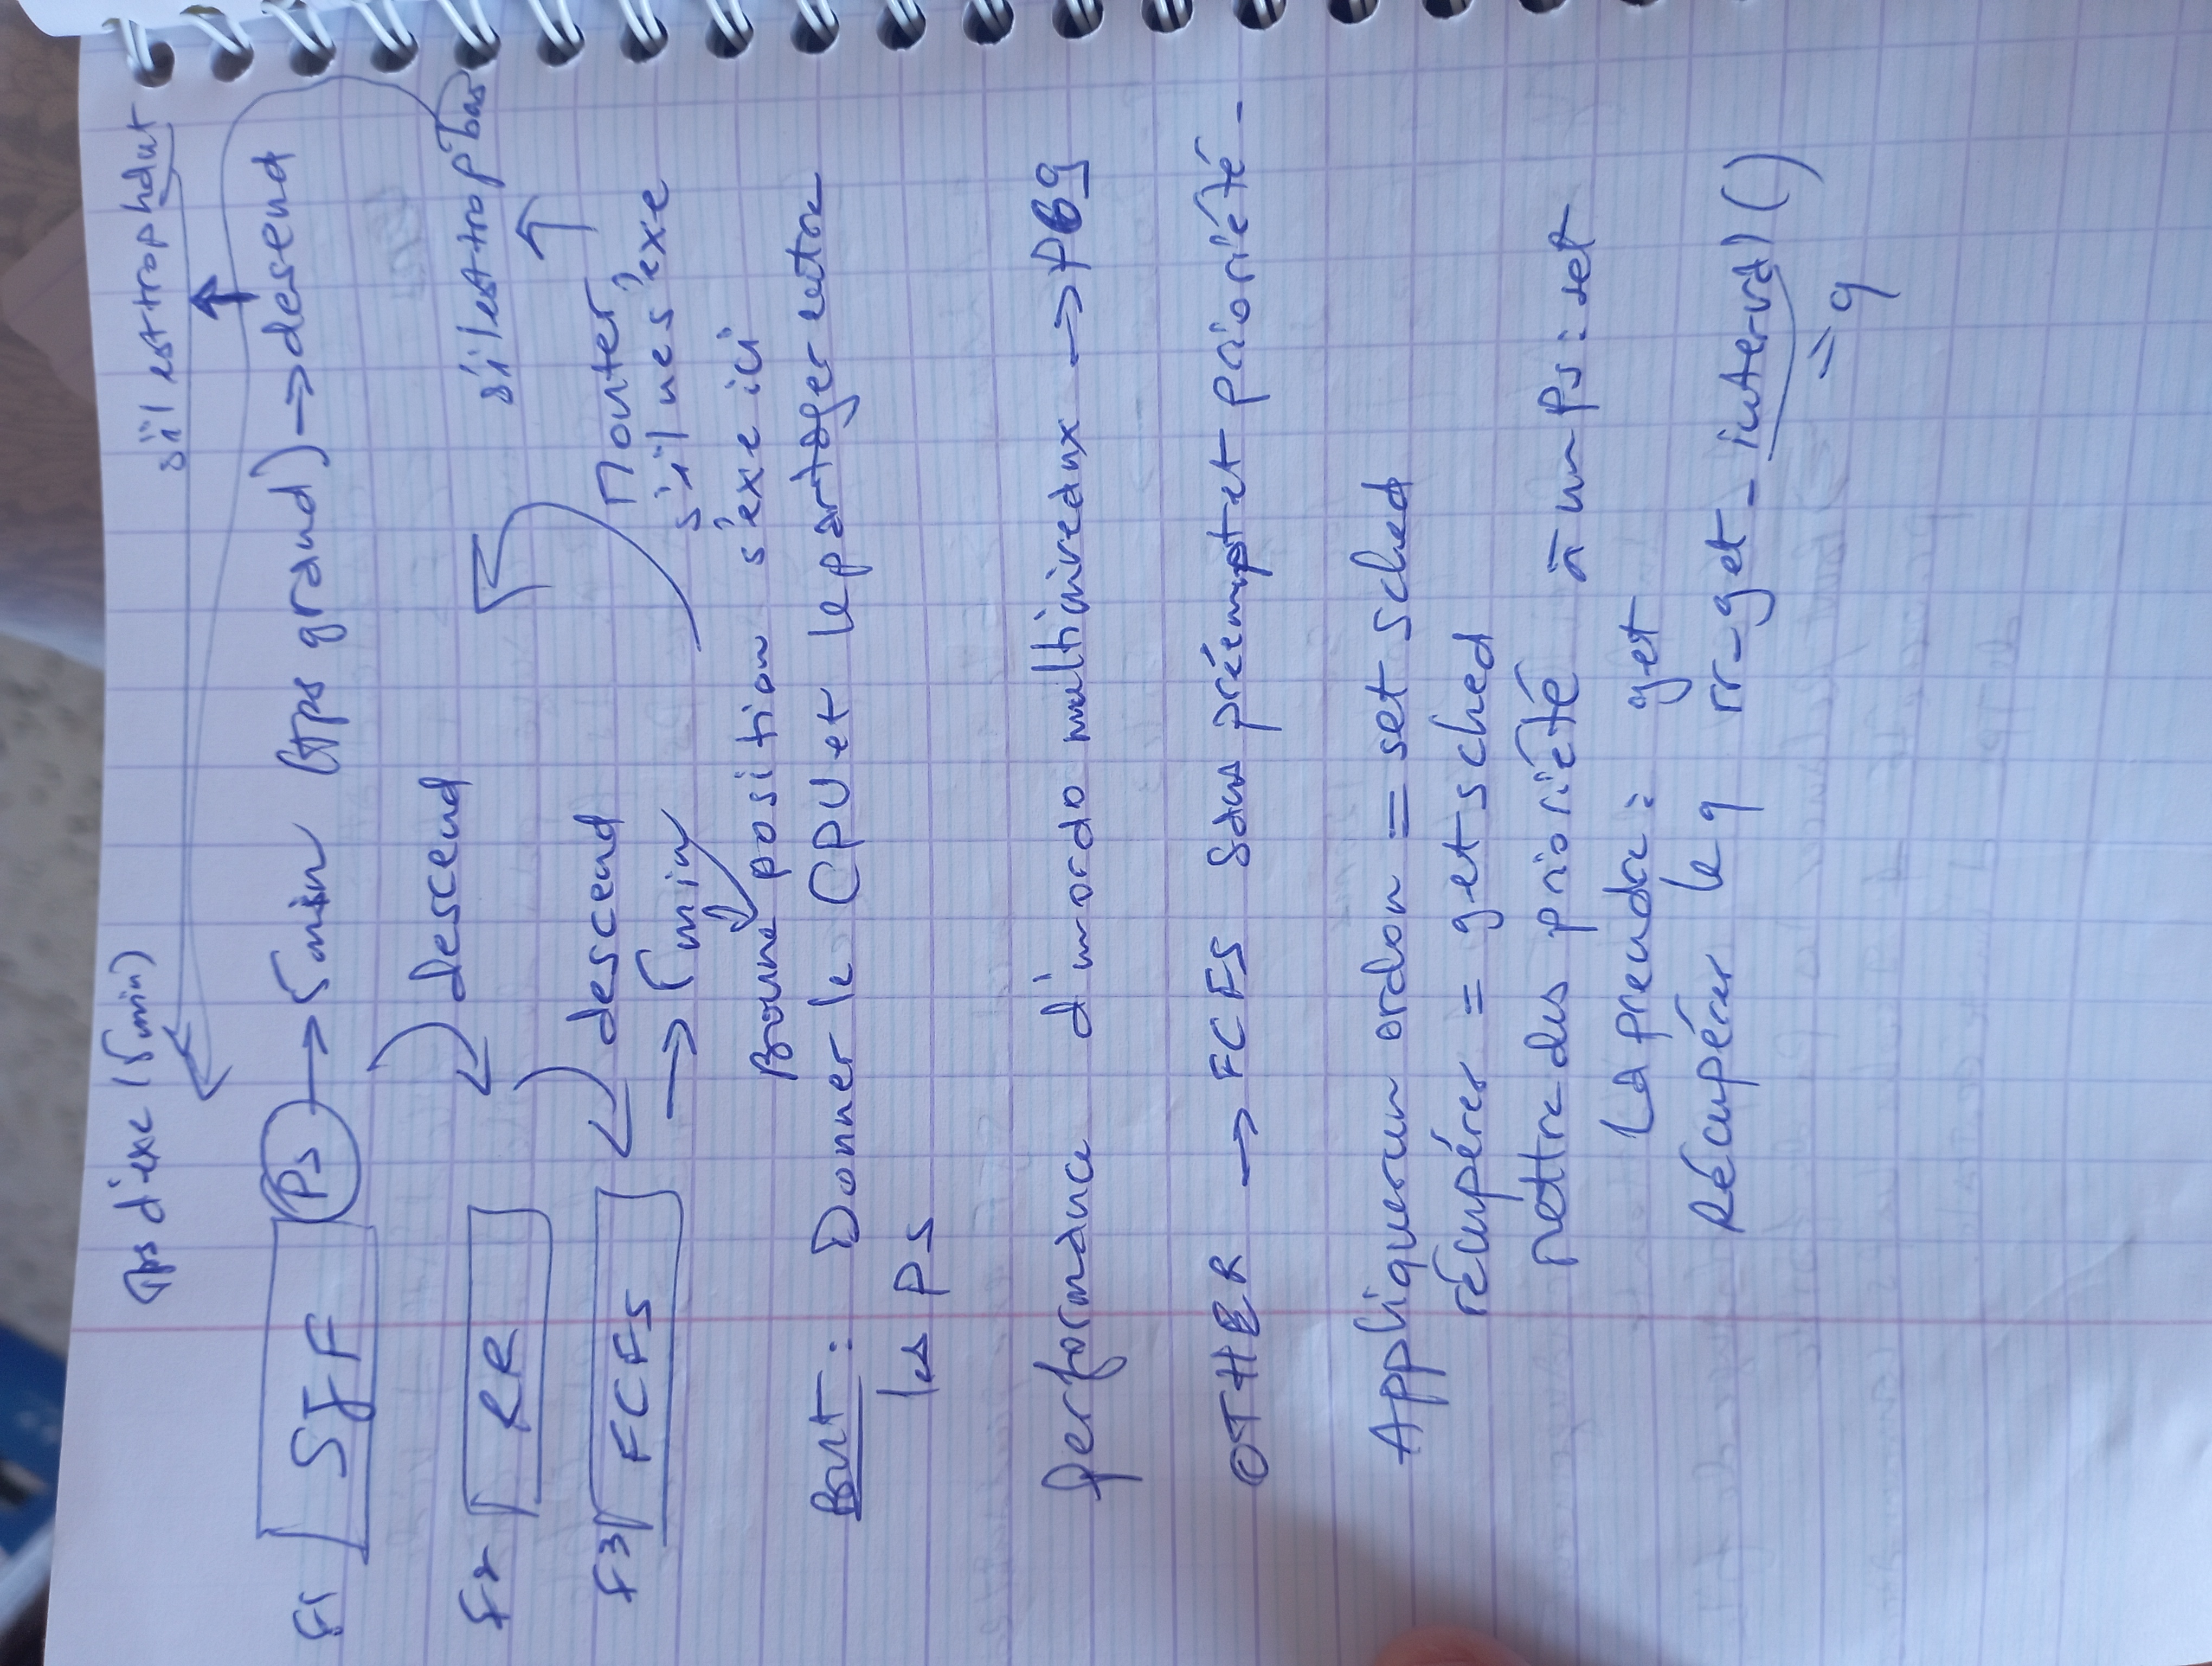 Tps d'exe (5min) s'il est trop haut
F1 SJF Ps → 5min (tps grand) → descend
descend
F2 RR s'il est trop bas
descend Monter
F3 FCFS → 5min s'il ne s'exe
Bonne position s'exe ici
But : Donner le CPU et le partager entre
les Ps
Performance d'un ordo multiniveaux →
OTHER → FCFS sans préempt et priorité -
Appliquer un ordon = setsched
récupérer = getsched
Mettre des priorité à un Ps : set
La prendre : get
Récupérer le q rr_get_interval()
= q